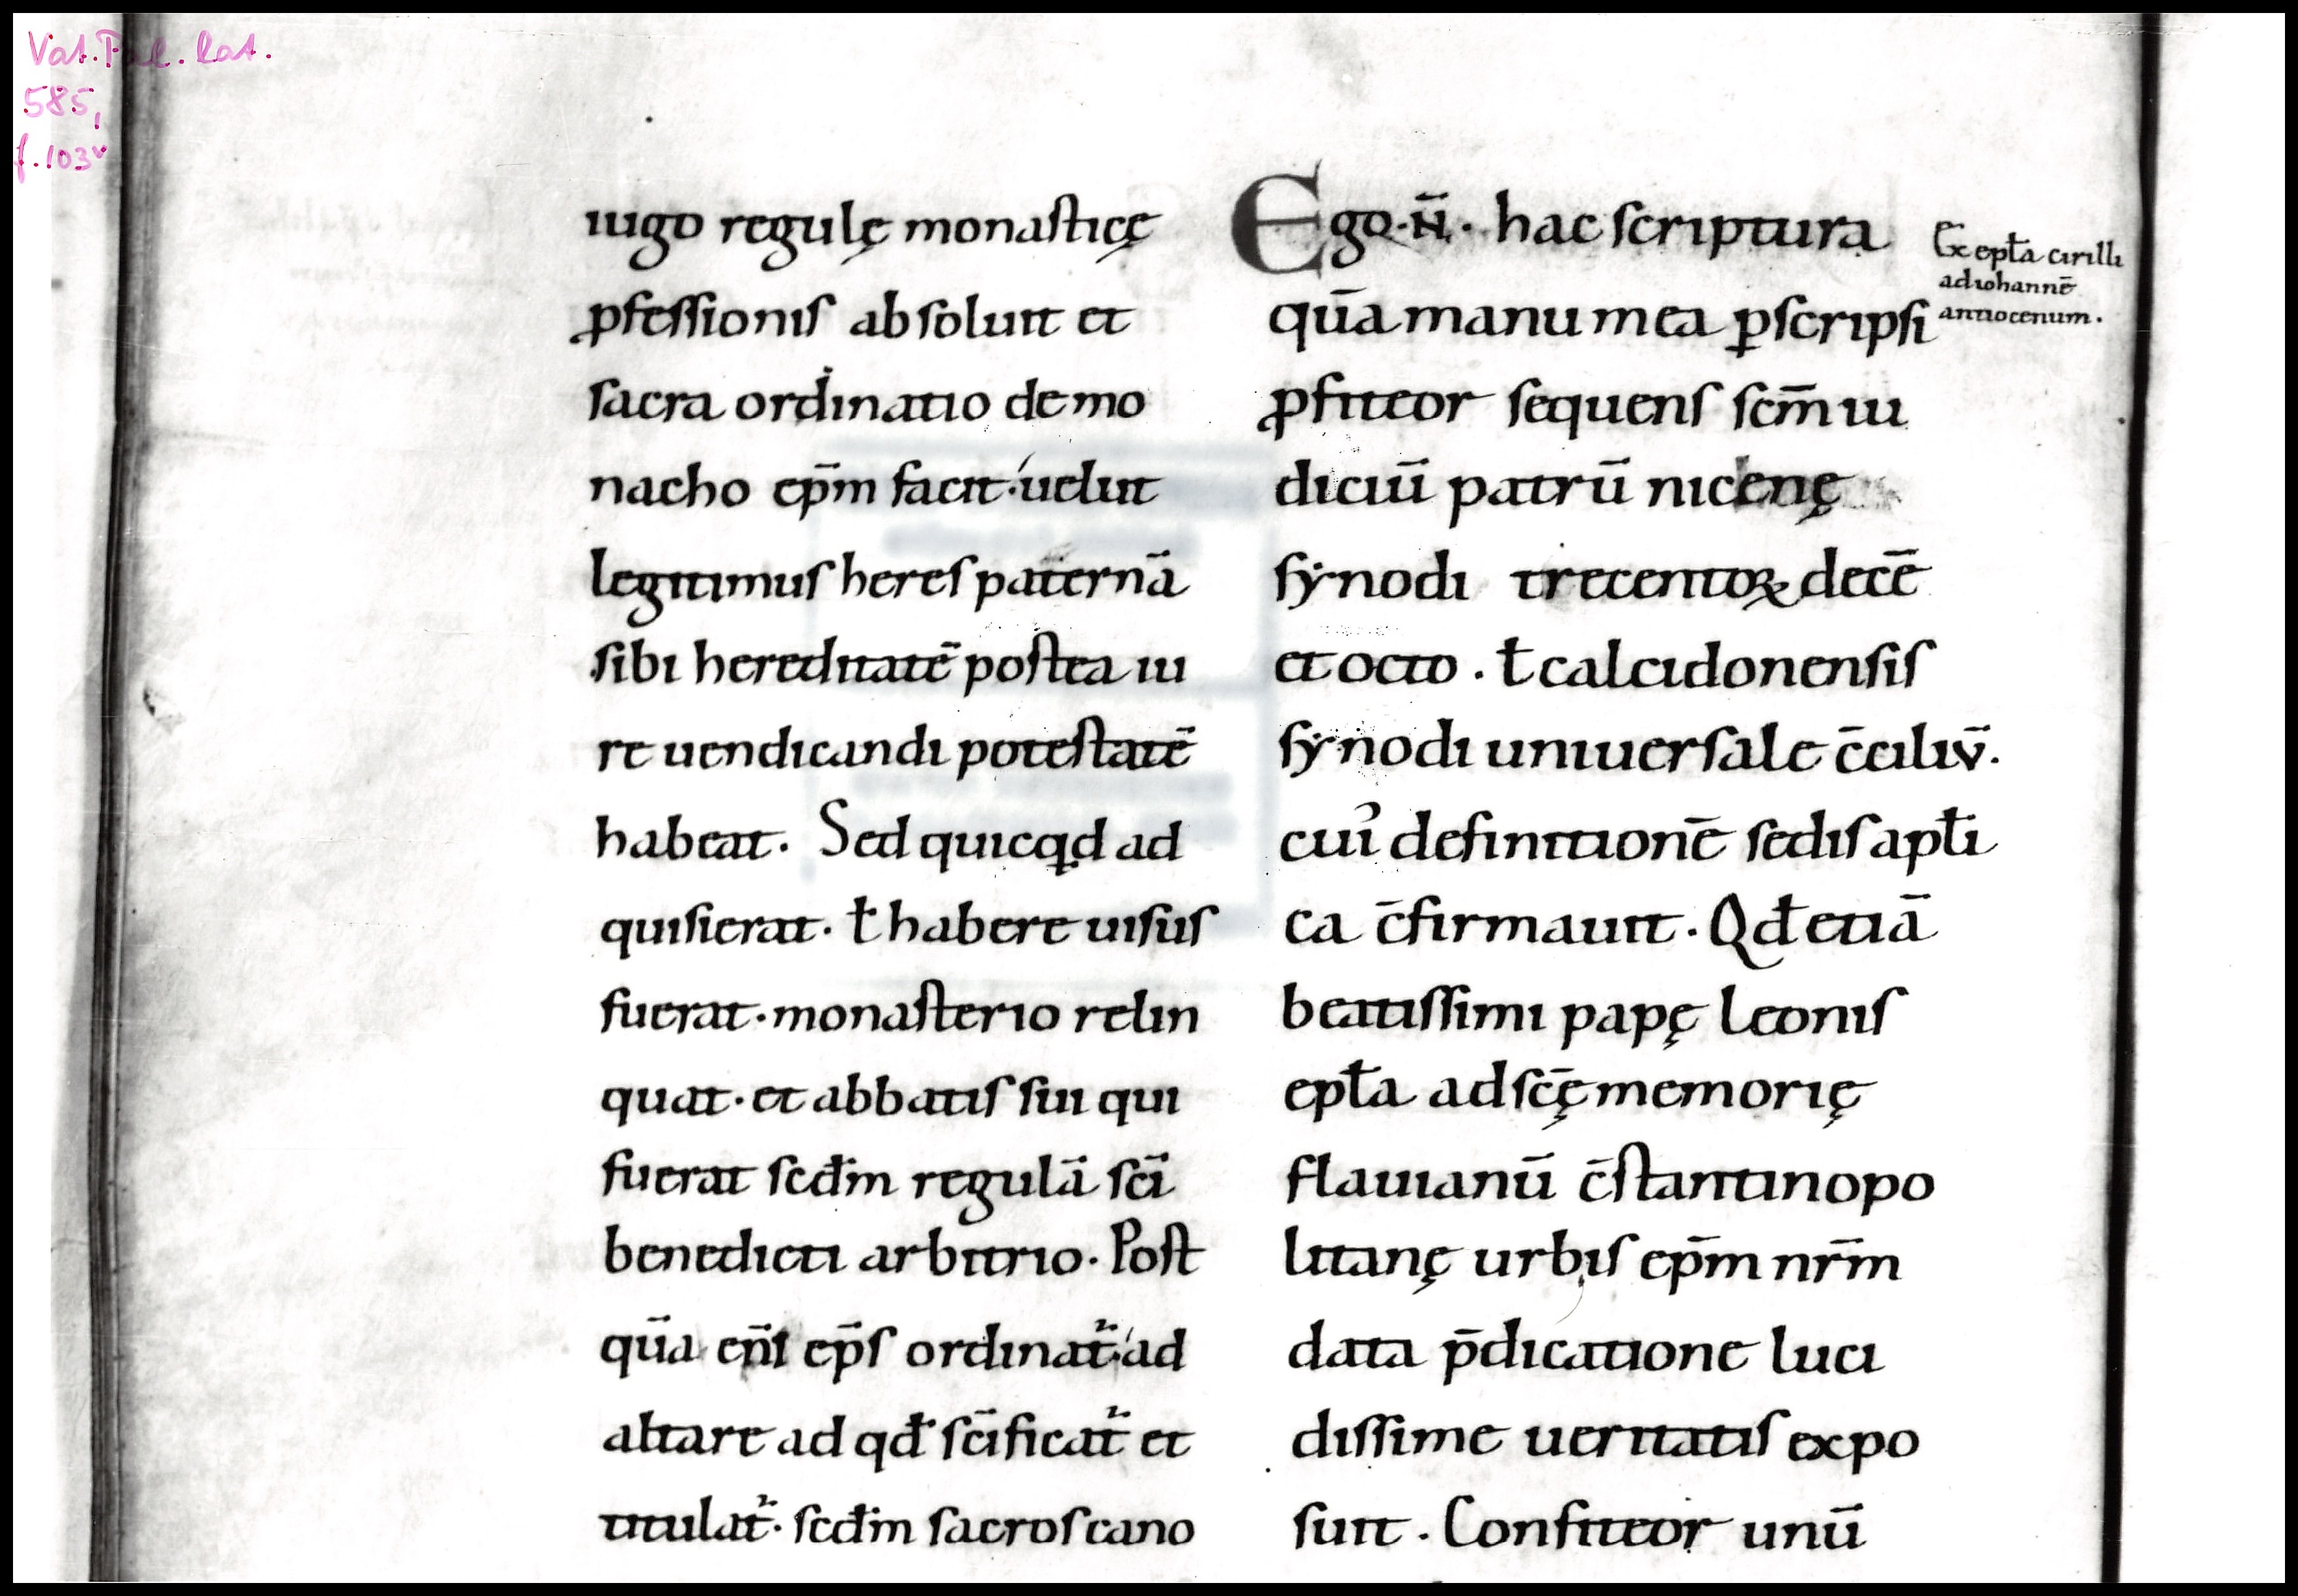 Vat. Pal. lat.
585,
f. 103v
iugo regulę monasticę
ꝓfessionis absoluit et
sacra ordinatio demo
nacho ep̄m facit. uelut
legitimus heres paternā
sibi hereditatē postea iu
re uendicandi potestatē
habeat. Sed quicqꝺ ad
quisierat. ł habere uisus
fuerat. monasterio relin
quat. et abbatis sui qui
fuerat scd̄m regulā sc̄i
benedicti arbitrio. Post
qūa eni᷑ ep̄s ordinat᷑. ad
altare ad qđ sc̄ificat᷑ et
titulat᷑. scd̄m sacros cano
Ego. N̄. hac scriptura
qūa manu mea ꝑscripsi
ꝓfiteor sequens scm̄ iu
diciū patrū nicenę
sẏnodi trecentoꝝ decē
et octo. ł calcidonensis
sẏnodi uniuersale c̄ciliū.
cuiꝰ definitionē sedis apłi
ca c̄firmauit. Qđ etiā
beatissimi papę leonis
epła ad sc̄ę memorię
flauianū c̄stantinopo
litanę urbis ep̄m nr̄m
data p̄dicatione luci
dissime ueritatis expo
suit. Confiteor unū
Ex epła cirilli
ad iohannē
antiocenum.